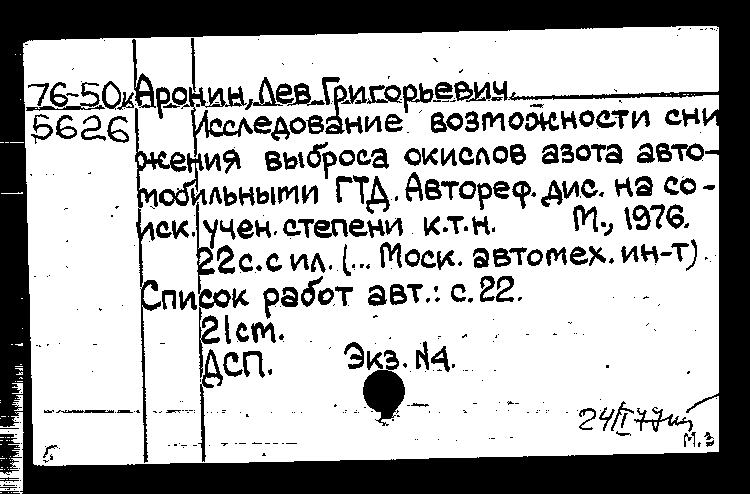 76-50к Аронин, Лев Григорьевич.
5626 Исследование возможности сни
жения выброса окислов азота авто-
мобильными ГТД. Автореф. дис. на со-
иск. учен. степени к.т.н. М., 1976.
22 с. с ил. (... Моск. автомех. ин-т).
Список работ авт.: с. 22.
21 cm.
ДСП. Экз. N4.
24/I 77
М.З
б